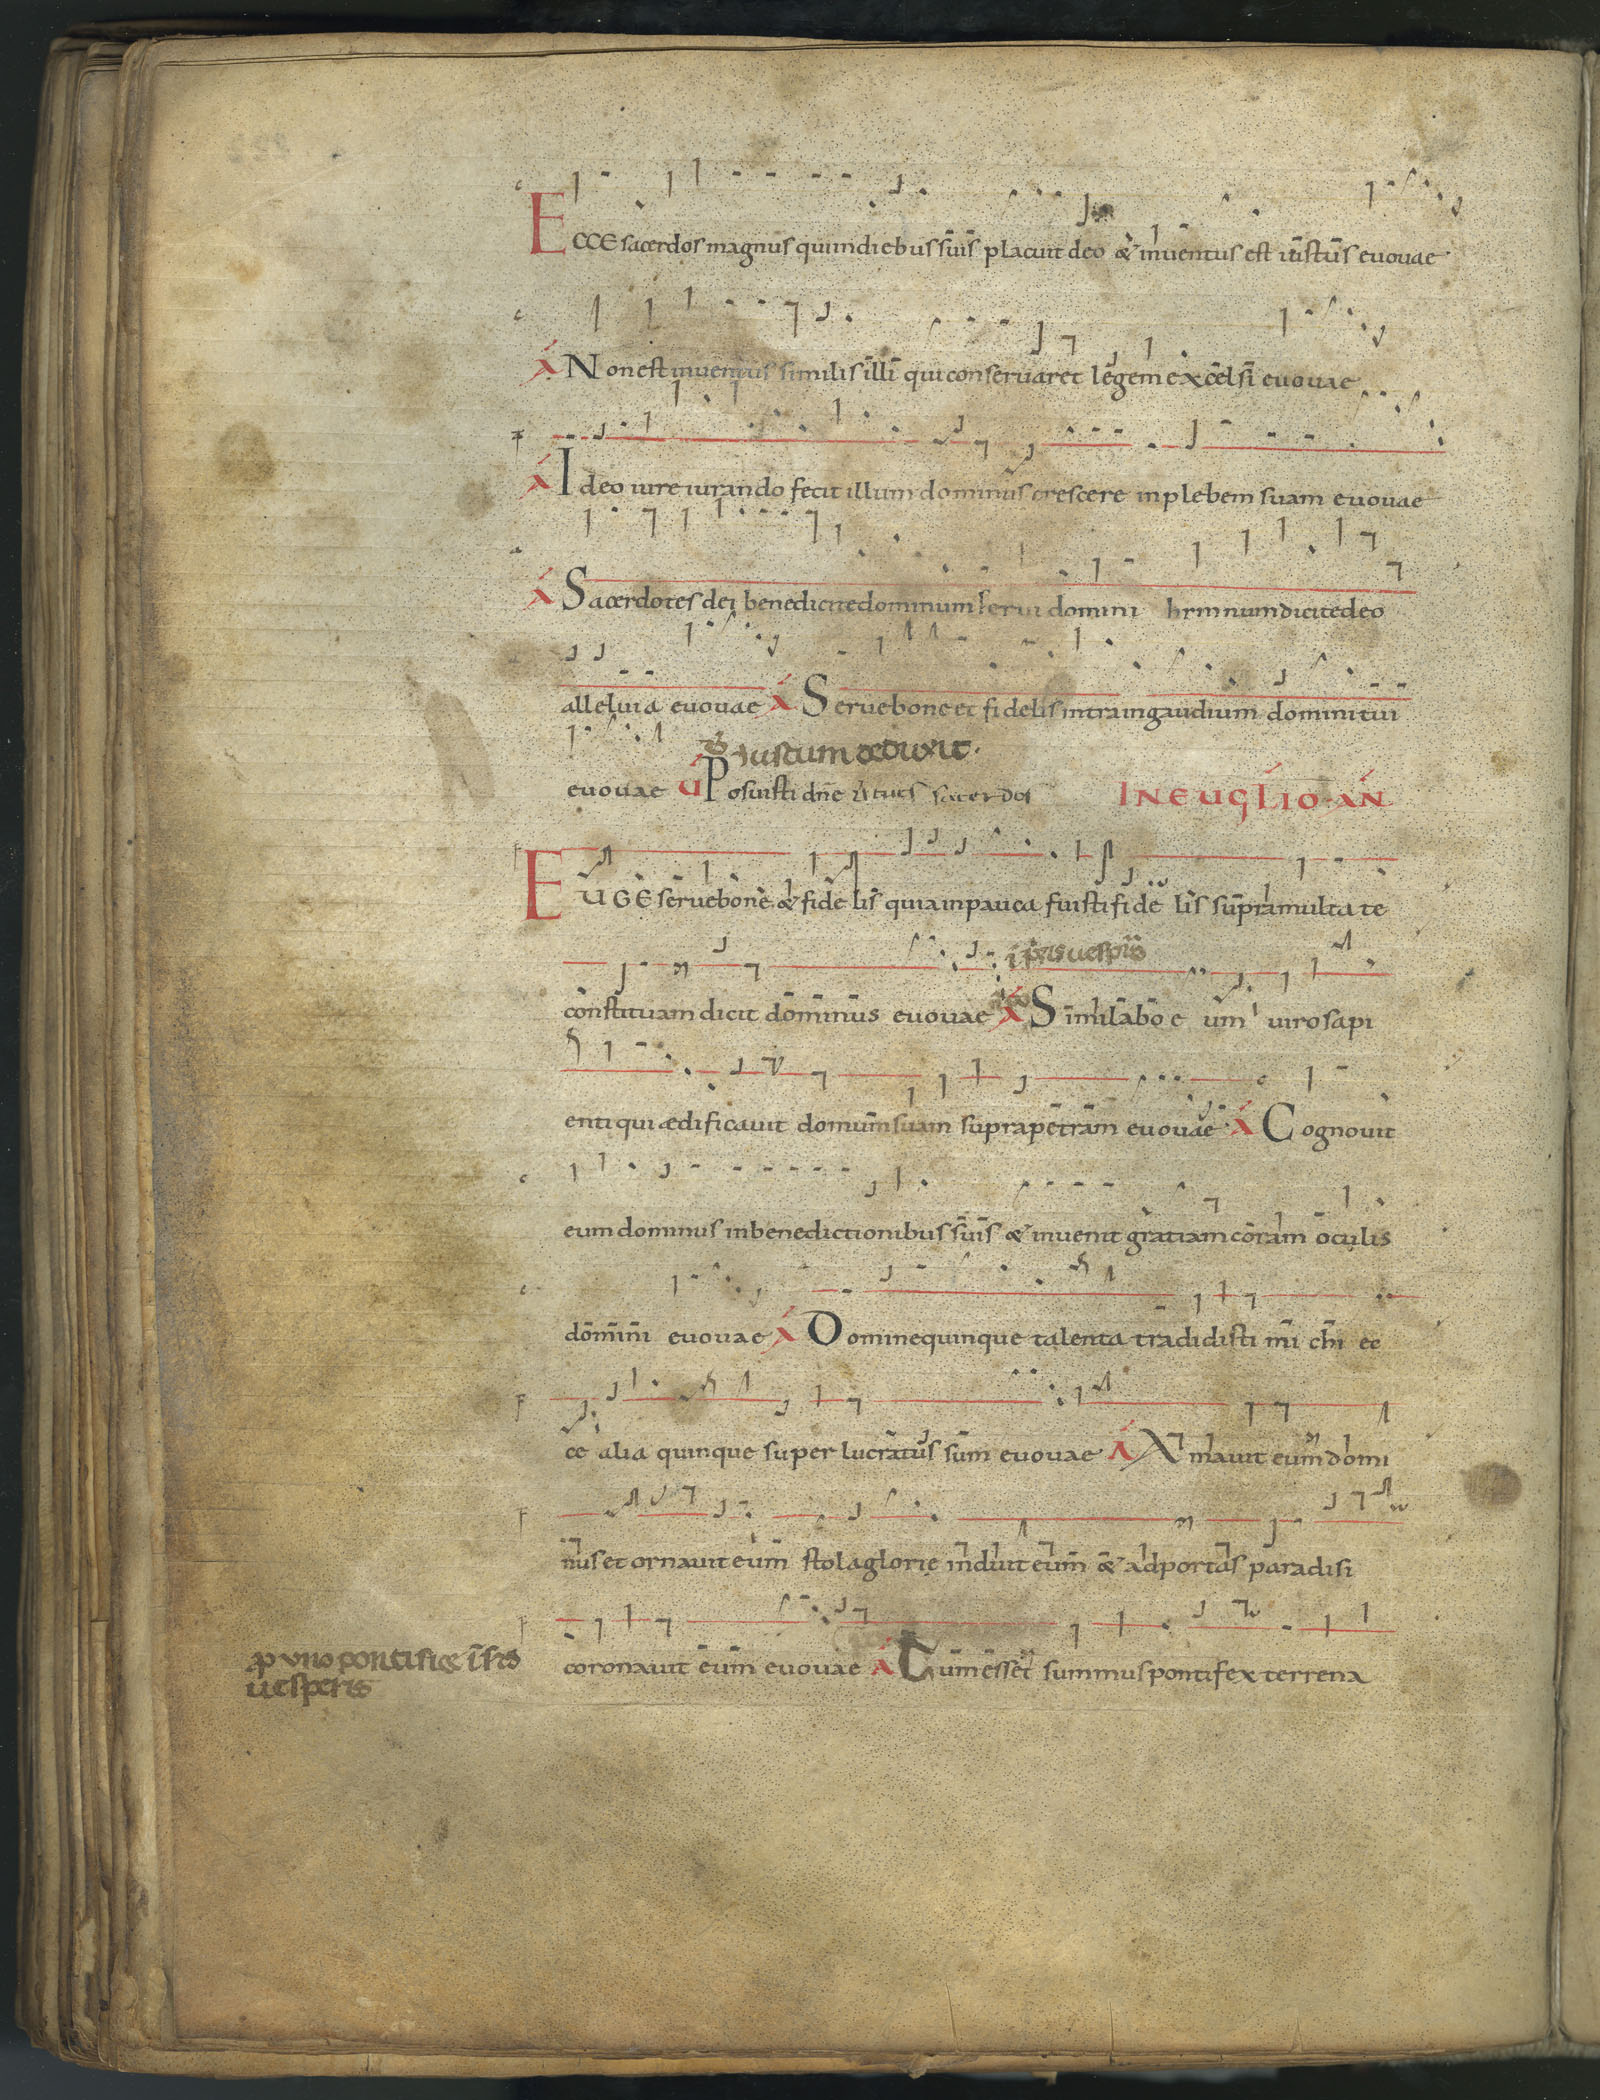 ECCE sacerdos magnus qui in diebus suis placuit deo & inventus est iustus evovae
A Non est inventus similis illi qui conservaret legem excelsi evovae
A Ideo iure iurando fecit illum dominus crescere in plebem suam evovae
A Sacerdotes dei benedicite dominum servi domini hymnum dicite deo
alleluia evovae A Serve bone et fidelis intra in gaudium domini tui
Iustum deduxit.
evovae V Posuisti dn̄e sacerdos IN EVGLIO AN
EUGE serve bone & fidelis quia in pauca fuisti fidelis supra multa te
i prīs vesprīs
constituam dicit dominus evovae A Similabo eum viro sapi
enti qui ædificavit domum suam supra petram evovae A Cognovit
eum dominus in benedictionibus suis & invenit gratiam coram oculis
domini evovae A Domine quinque talenta tradidisti michi ec
ce alia quinque super lucratus sum evovae A Amavit eum domi
nus et ornavit eum stola glorię induit eum & ad portas paradisi
p uno pontifice i scds
vesperis
coronavit eum evovae A Cum esset summus pontifex terrena